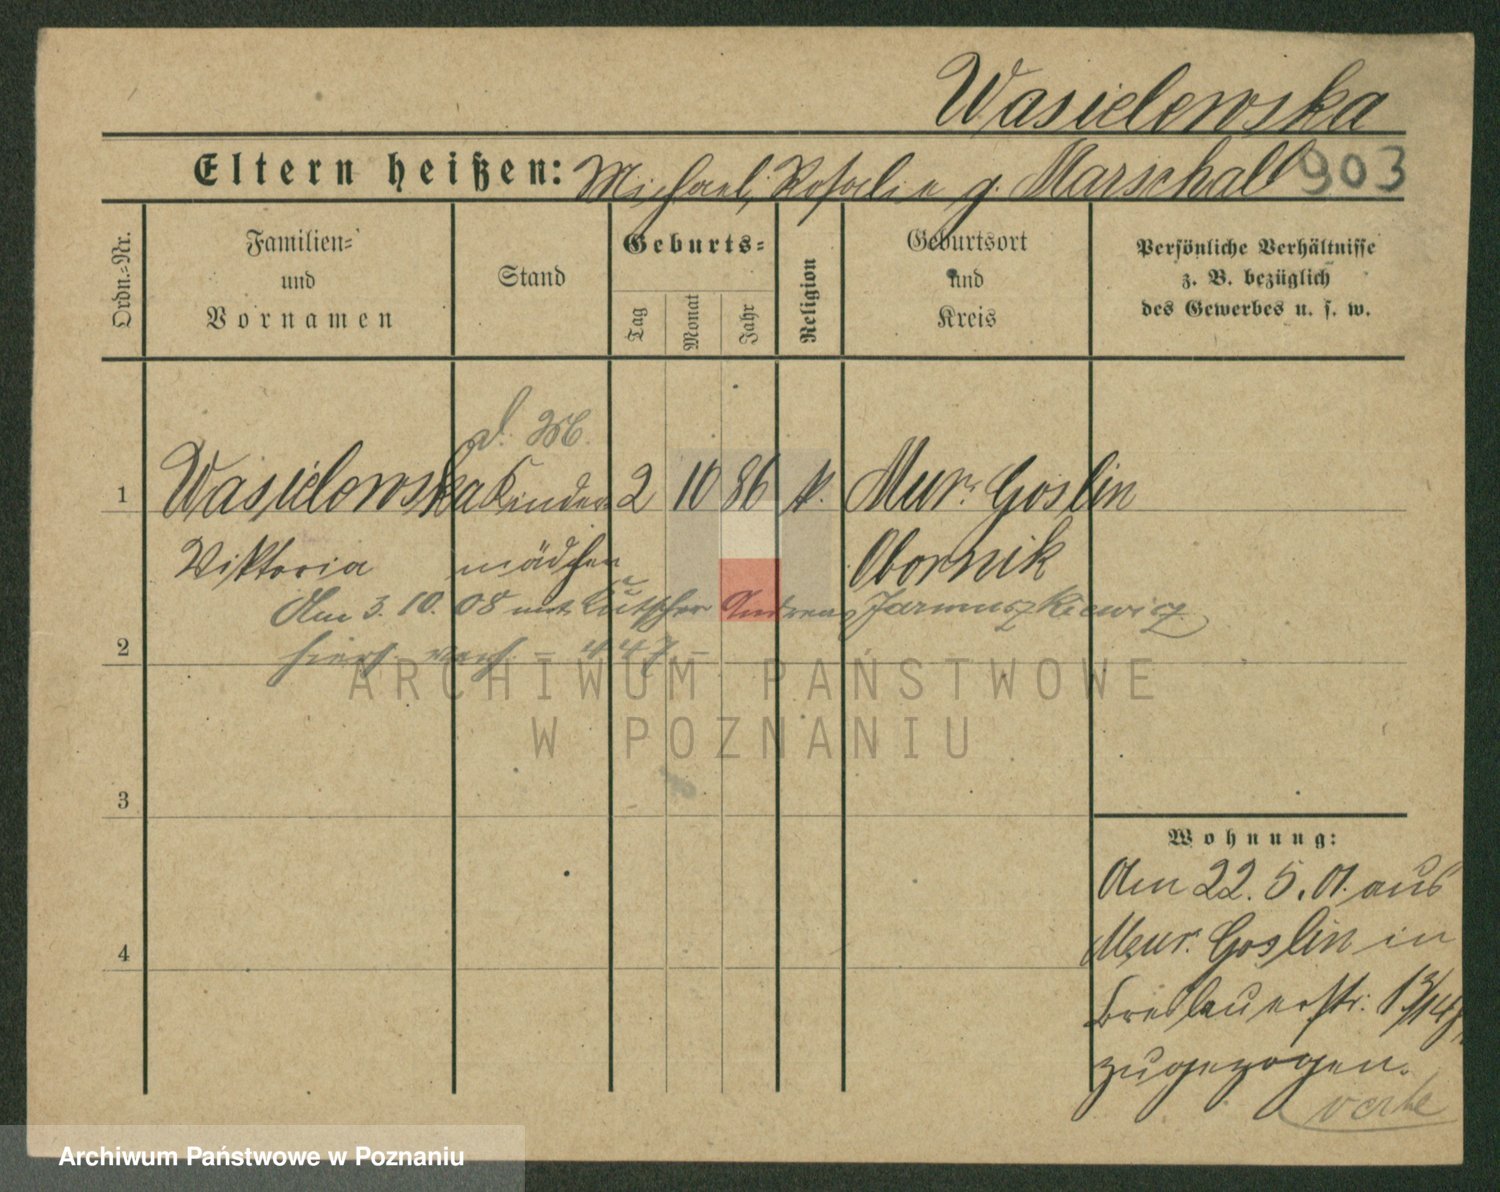 Wasielewska
Eltern heißen: Michael, Rosalie g. Marschall 903
Ordn.-Nr.
Familien=
und
Vornamen
Stand
Geburts=
Tag
Monat
Jahr
Religion
Geburtsort
und
Kreis
Persönliche Verhältnisse
z. B. bezüglich
des Gewerbes u. s. w.
d. M.
1 Wasielewska Kinder 2 10 86 k. Mur. Goslin
Viktoria mädchen Obornik
Am 3. 10. 08 mit Kutscher Andreas Jarmuszkiewicz
2 hier verh. – 447 –
ARCHIWUM PAŃSTWOWE
W POZNANIU
3
Wohnung:
Am 22. 5. 01. aus
4 Mur. Goslin in
Breslauerstr. 13/14
zugezogen.
verte
Archiwum Państwowe w Poznaniu